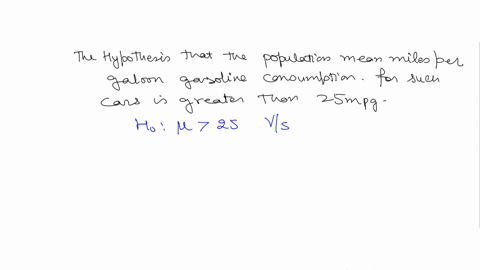 The Hypothesis that the population mean miles per
galoon gasoline consumption. for such
cars is greater than 25mpg.
H₀: μ > 25 V/s